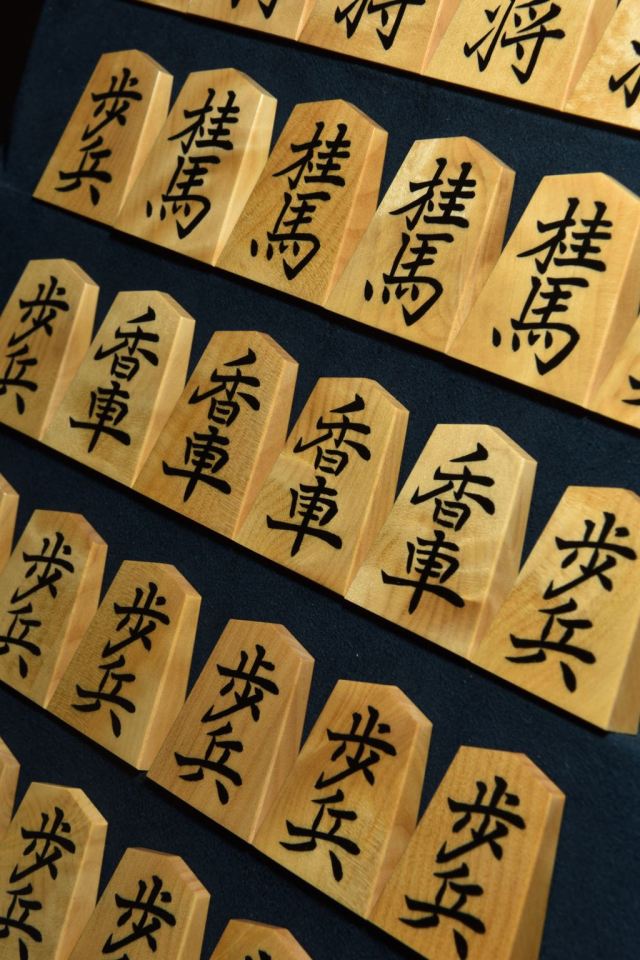 将
将
歩兵
桂馬
桂馬
桂馬
桂馬
歩兵
香車
香車
香車
香車
歩兵
歩兵
歩兵
歩兵
歩兵
歩兵
歩兵
歩